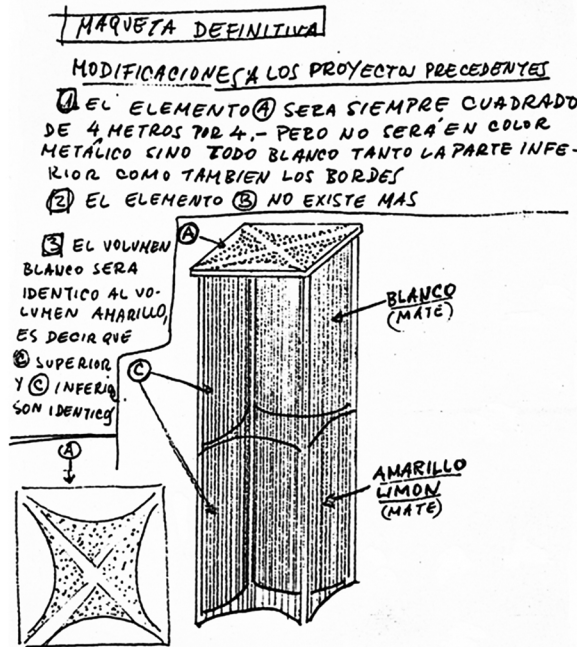 MAQUETA DEFINITIVA
MODIFICACIONES A LOS PROYECTOS PRECEDENTES
1 EL ELEMENTO A SERA SIEMPRE CUADRADO
DE 4 METROS POR 4.- PERO NO SERÁ EN COLOR
METÁLICO SINO TODO BLANCO TANTO LA PARTE INFE-
RIOR COMO TAMBIEN LOS BORDES
2 EL ELEMENTO B NO EXISTE MAS
3 EL VOLUMEN
BLANCO SERA
IDENTICO AL VO-
LUMEN AMARILLO,
ES DECIR QUE
C SUPERIOR
Y C INFERIOR
SON IDENTICOS
A
BLANCO
(MATE)
C
AMARILLO
LIMON
(MATE)
A